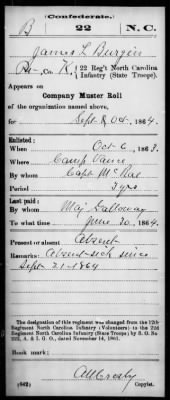 (Confederate.)
B 22 N.C.
James L Burgin
Co. K, 22 Reg't North Carolina
Infantry (State Troops).
Appears on
Company Muster Roll
of the organization named above,
for Sept & Oct, 1864.
Enlisted:
When Oct 6, 1863.
Where Camp Vance
By whom Capt McRae
Period 3 yrs
Last paid:
By whom Maj Galloway
To what time June 30, 1864.
Present or absent Absent
Remarks: Absent-sick since
Sept 21-1864
The designation of this regiment was changed from the 12th
Regiment North Carolina Infantry (Volunteers) to the 22d
Regiment North Carolina Infantry (State Troops) by S. O. No.
222, A. & I. G. O., dated November 14, 1861.
Book mark:
(642) Copyist.